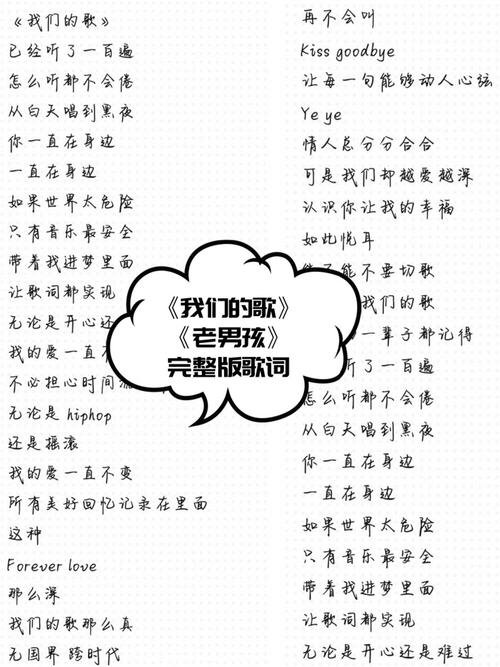 《我们的歌》
已经听了一百遍
怎么听都不会倦
从白天唱到黑夜
你一直在身边
一直在身边
如果世界太危险
只有音乐最安全
带着我进梦里面
让歌词都实现
无论是开心还
我的爱一直不
不必担心时间
无论是 hiphop
还是摇滚
我的爱一直不变
所有美好回忆记录在里面
这种
Forever love
那么深
我们的歌那么真
无国界 跨时代
再不会叫
Kiss goodbye
让每一句能够动人心弦
Ye ye
情人总分分合合
可是我们却越爱越深
认识你让我的幸福
如此悦耳
能不能不要切歌
我们的歌
一辈子都记得
听了一百遍
怎么听都不会倦
从白天唱到黑夜
你一直在身边
一直在身边
如果世界太危险
只有音乐最安全
带着我进梦里面
让歌词都实现
无论是开心还是难过
《我们的歌》
《老男孩》
完整版歌词